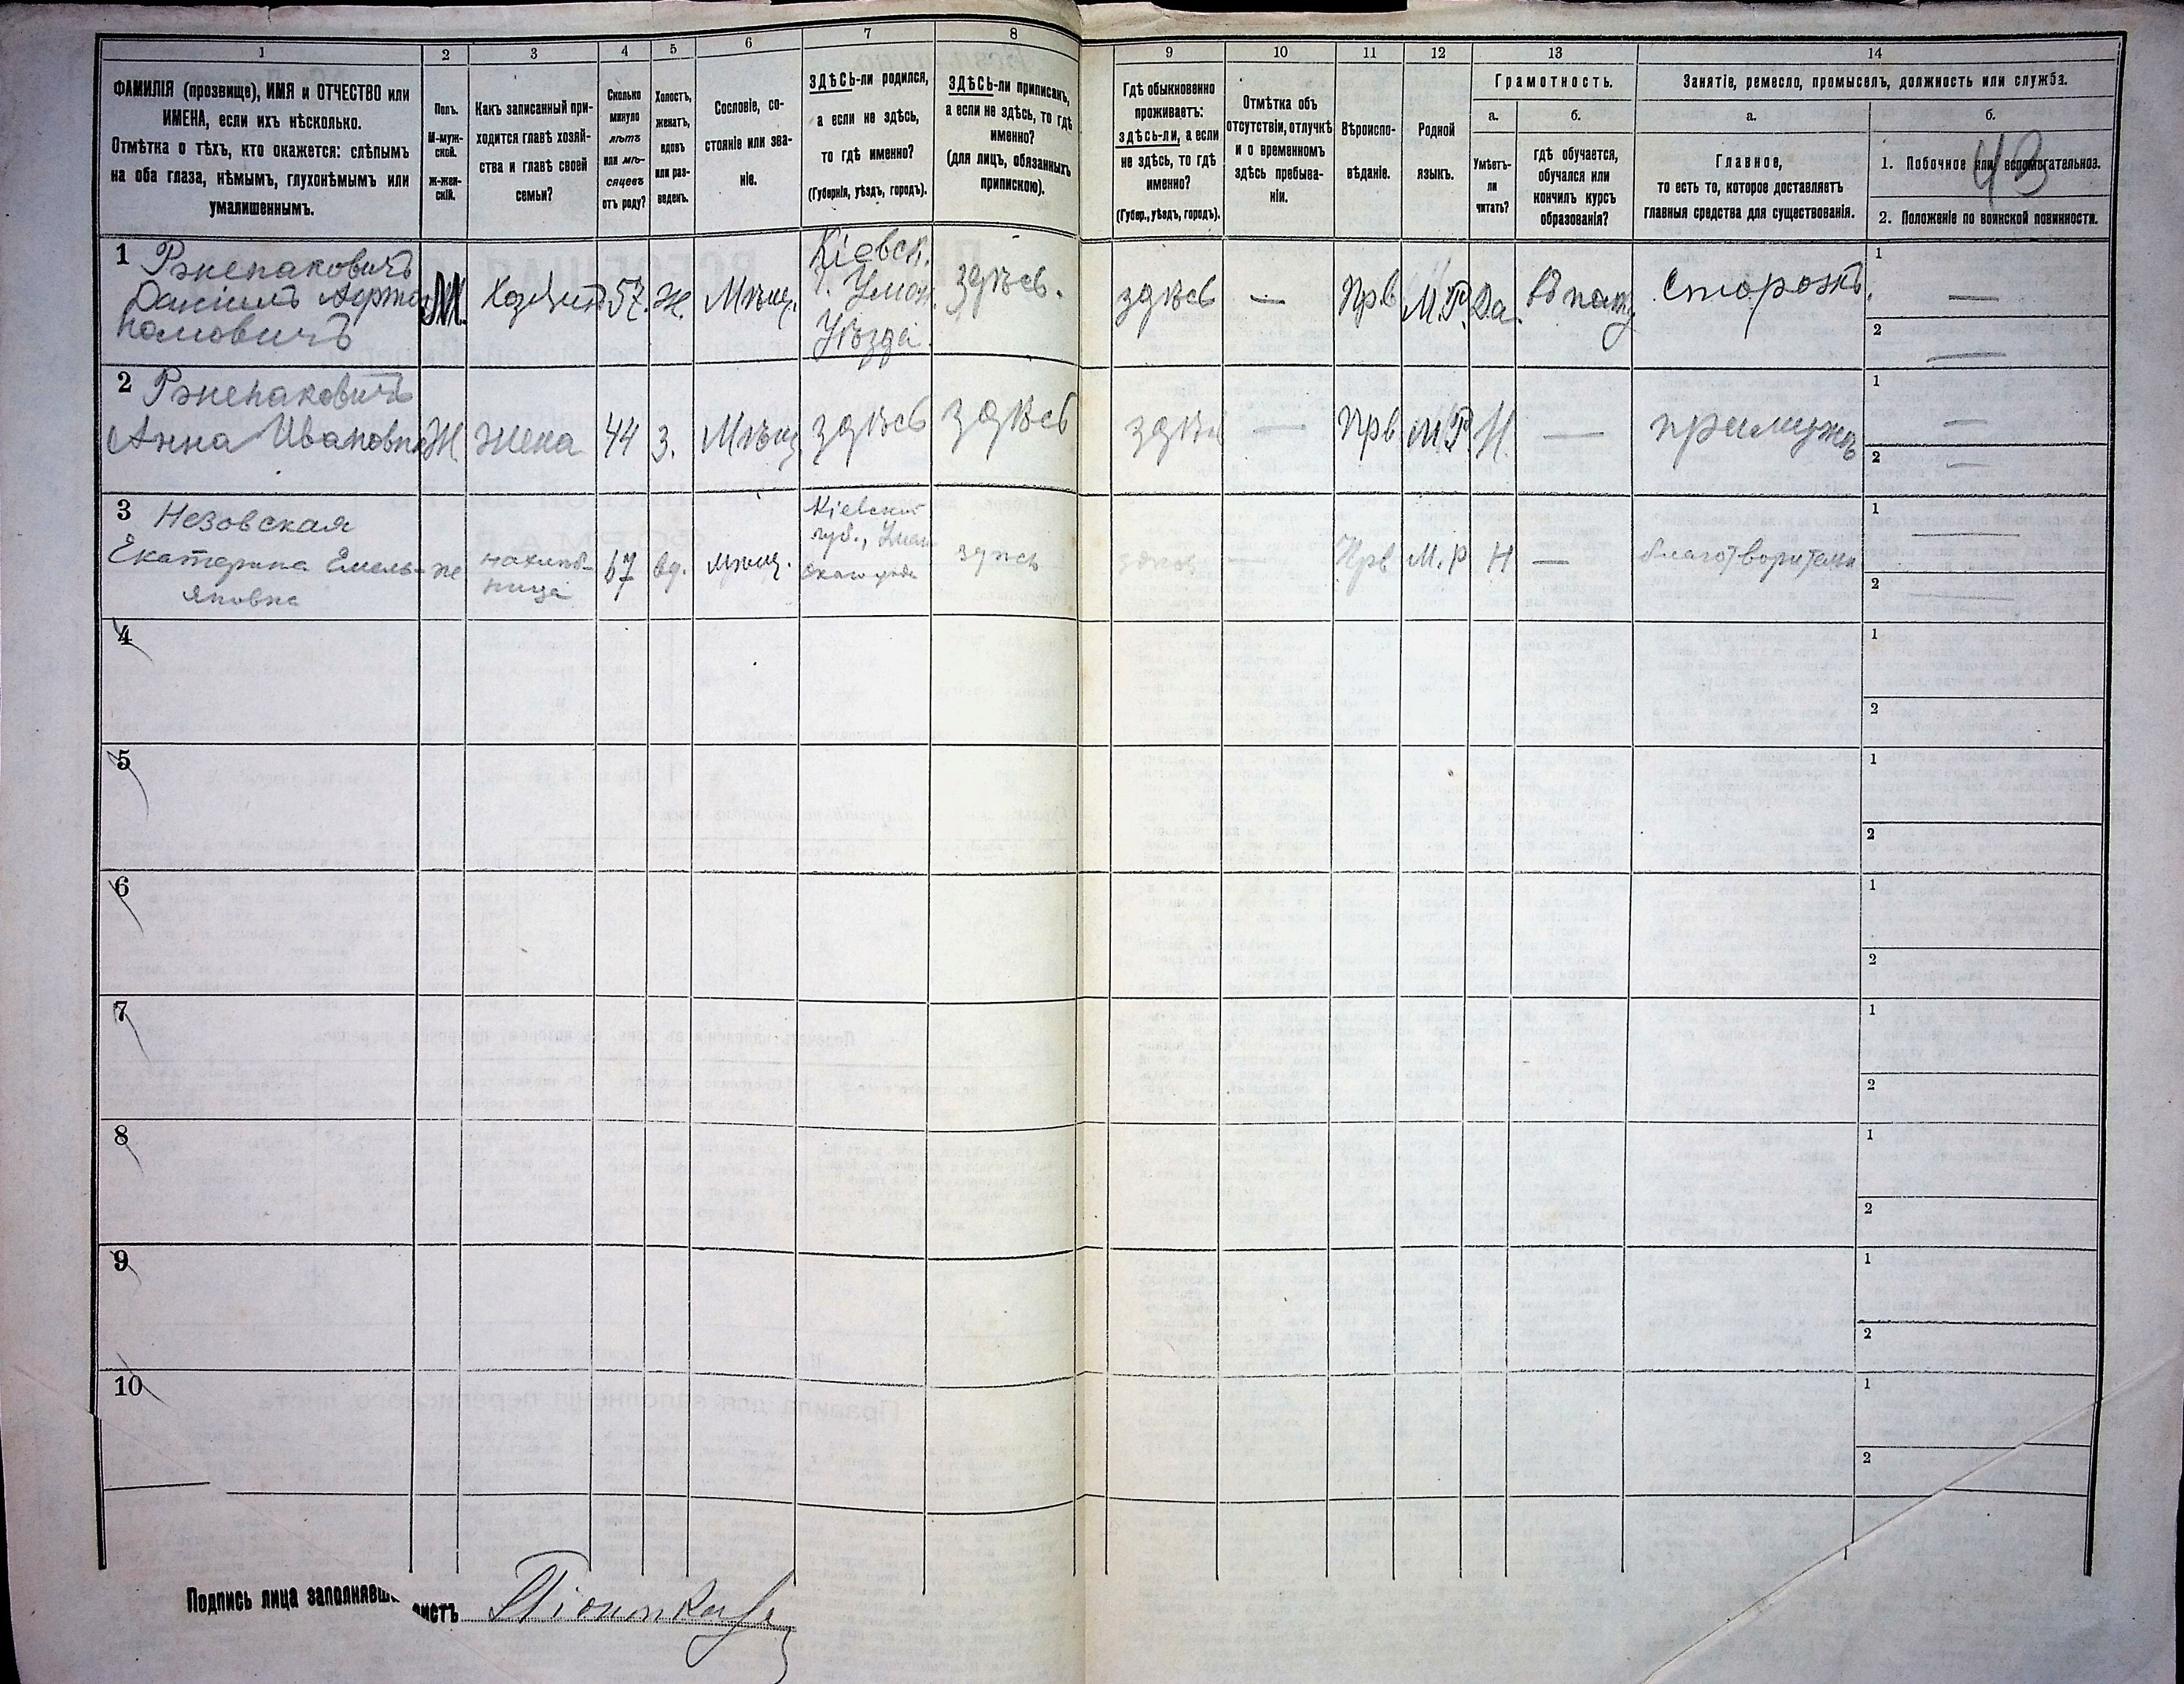 1 2 3 4 5 6 7 8 9 10 11 12 13 14
ФАМИЛІЯ (прозвище), ИМЯ и ОТЧЕСТВО или
ИМЕНА, если ихъ нѣсколько.
Отмѣтка о тѣхъ, кто окажется: слѣпымъ
на оба глаза, нѣмымъ, глухонѣмымъ или
умалишеннымъ.
Полъ.
М-муж-
ской.
ж-жен-
скій.
Какъ записанный при-
ходится главѣ хозяй-
ства и главѣ своей
семьи?
Сколько
минуло
лѣтъ
или мѣ-
сяцевъ
отъ роду?
Холостъ,
женатъ,
вдовъ
или раз-
веденъ.
Сословіе, со-
стояніе или зва-
ніе.
ЗДѢСЬ-ли родился,
а если не здѣсь,
то гдѣ именно?
(Губернія, уѣздъ, городъ).
ЗДѢСЬ-ли приписанъ,
а если не здѣсь, то гдѣ
именно?
(для лицъ, обязанныхъ
припискою).
Гдѣ обыкновенно
проживаетъ:
здѣсь-ли, а если
не здѣсь, то гдѣ
именно?
(Губер., уѣздъ, городъ).
Отмѣтка объ
отсутствіи, отлучкѣ
и о временномъ
здѣсь пребыва-
ніи.
Вѣроиспо-
вѣданіе.
Родной
языкъ.
Грамотность.
а.
Умѣетъ-
ли
читать?
б.
гдѣ обучается,
обучался или
кончилъ курсъ
образованія?
Занятіе, ремесло, промыселъ, должность или служба.
а.
Главное,
то есть то, которое доставляетъ
главныя средства для существованія.
б.
1. Побочное или вспомогательное.
2. Положеніе по воинской повинности.
1 Данiилъ
М. 57. Ж. Мѣщ.
Кiевск.
г. Уман.
Уѣзда.
здѣсь.
здѣсь — Прв М.Р. Да. Сторожъ
1 —
2 —
2
Анна Ивановна Ж. жена 44 З. Мѣщ. здѣсь здѣсь
— Прв М.Р. Н. —
1 —
2 —
3 Незовская
Екатерина Емель-
яновна
же 67 вд. мѣщ.
губ.,
здѣсь
— Прв М.Р Н —
1 —
2 —
4 1
2
5 1
2
6 1
2
7 1
2
8 1
2
9 1
2
10 1
2
Подпись лица заполнявш
листъ